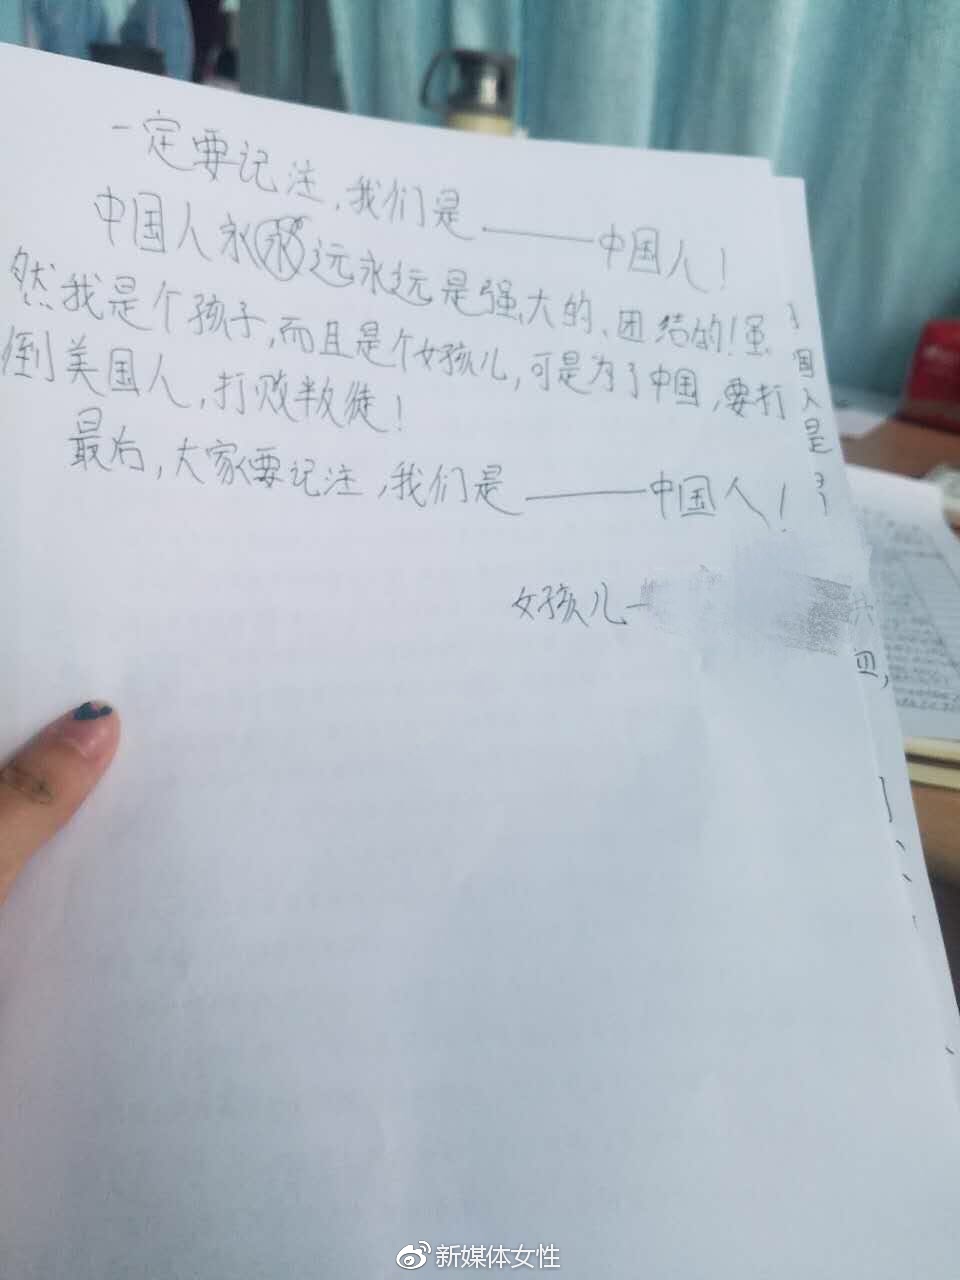 一定要记注，我们是——中国人！
中国人永远永远是强大的、团结的！虽
然我是个孩子，而且是个女孩儿，可是为了中国，要打
倒美国人，打败半叛徒！
最后，大家要记注，我们是——中国人！
女孩儿—
国人是
新媒体女性